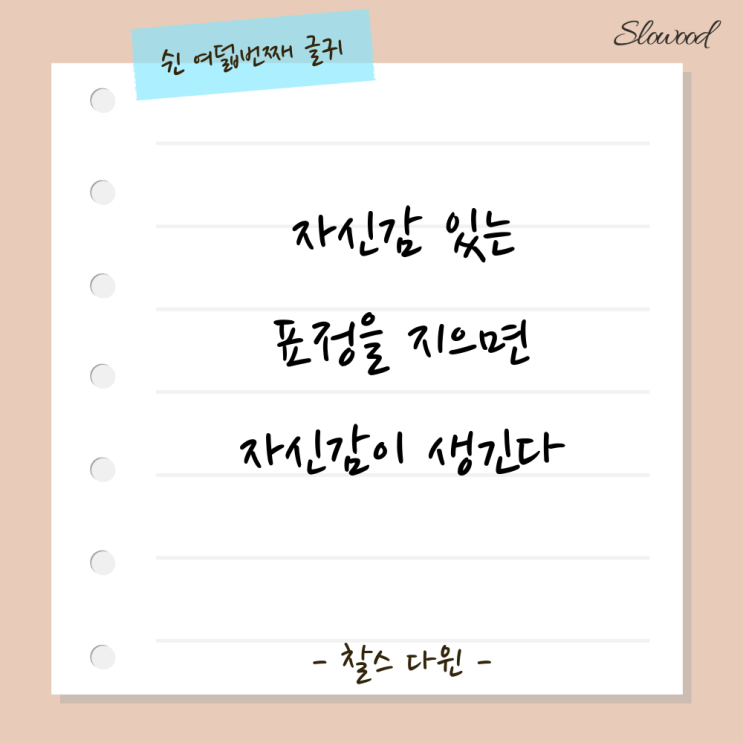 Slowood
쉰 여덟번째 글귀
자신감 있는
표정을 지으면
자신감이 생긴다
- 찰스 다윈 -